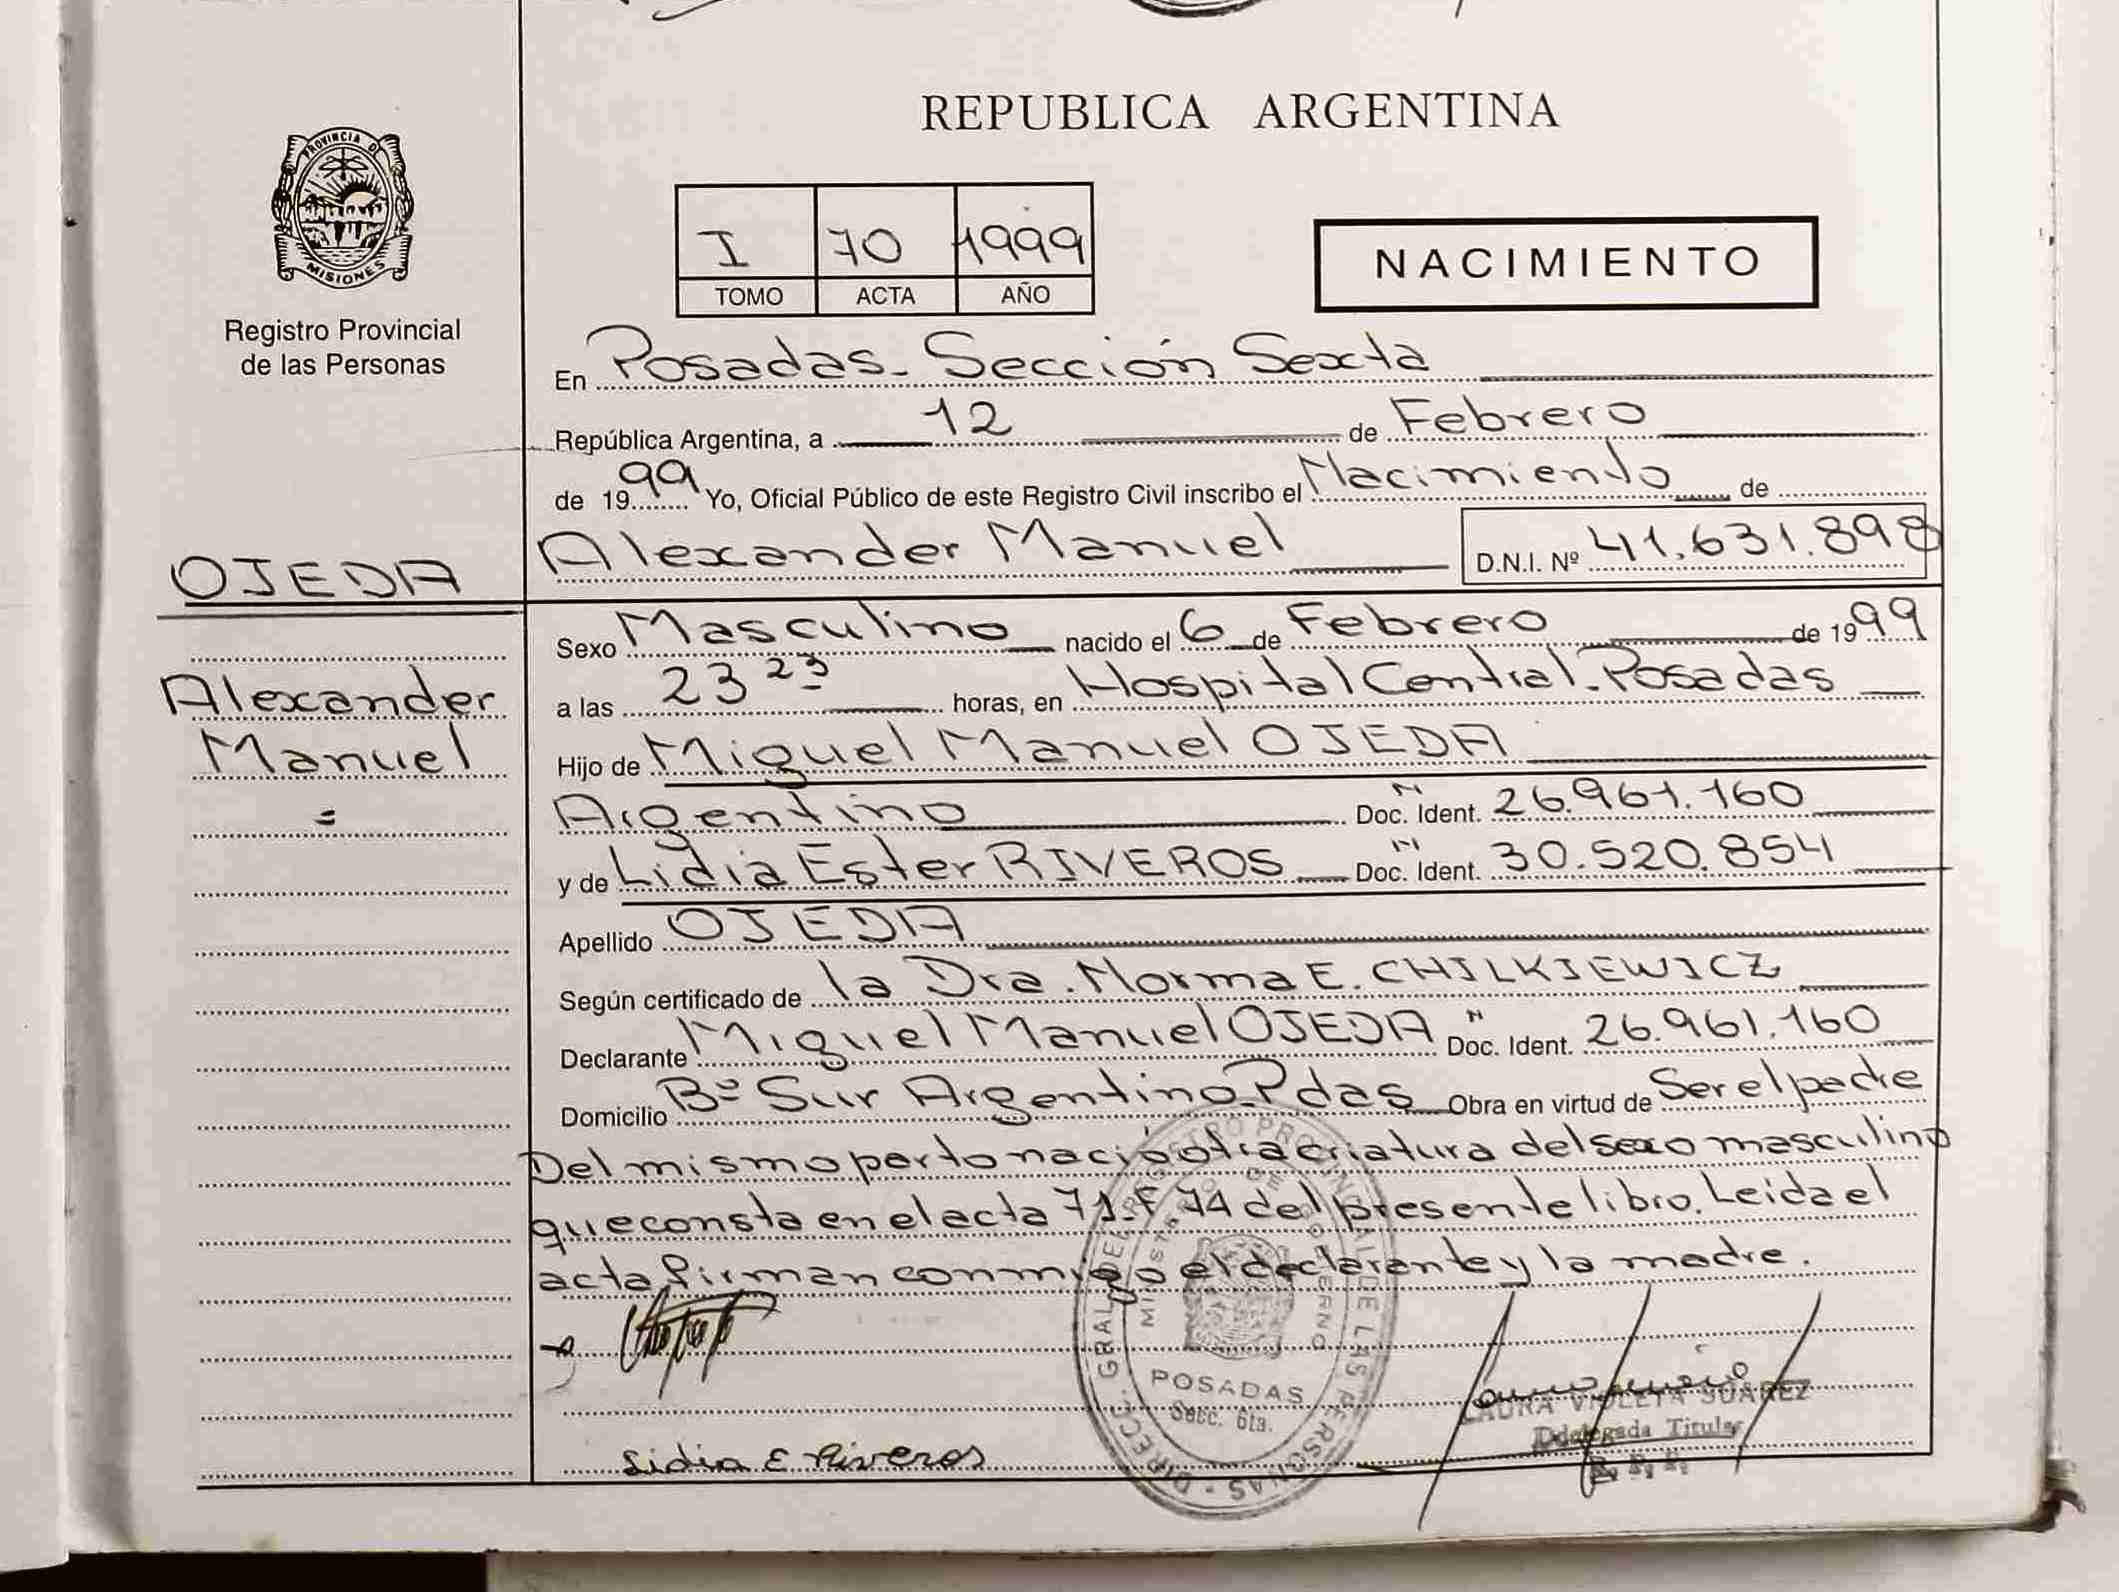 REPUBLICA ARGENTINA
PROVINCIA DE
MISIONES
Registro Provincial
de las Personas
I 70 1999
TOMO ACTA AÑO
NACIMIENTO
En Posadas - Sección Sexta
República Argentina, a 12 de Febrero
de 1999 Yo, Oficial Público de este Registro Civil inscribo el Nacimiento de
OJEDA
Alexander Manuel D.N.I. Nº 41.631.898
Sexo Masculino nacido el 6 de Febrero de 1999
Alexander
Manuel
=
a las 23 23 horas, en Hospital Central - Posadas
Hijo de Miguel Manuel OJEDA
Argentino Doc. Ident. N 26.961.160
y de Lidia Ester RIVEROS Doc. Ident. N 30.520.854
Apellido OJEDA
Según certificado de la Dra. Norma E. CHILKIEWICZ
Declarante Miguel Manuel OJEDA Doc. Ident. N 26.961.160
Domicilio Bº Sur Argentino - Pdas Obra en virtud de Ser el padre
Del mismo parto nació otra criatura del sexo masculino
que consta en el acta 71 - F. 74 del presente libro. Leida el
acta firman conmigo el declarante y la madre.
DIRECC. GRAL. DEL REGISTRO PROVINCIAL DE LAS PERSONAS
MINISTERIO DE GOBIERNO
POSADAS
Secc. 6ta.
LAURA VIOLETA SUAREZ
Delegada Titular
R. P. P.
Lidia E Riveros